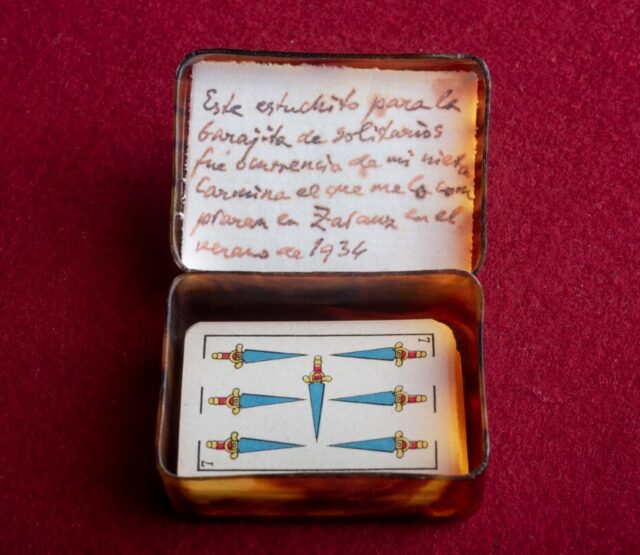 Este estuchito para la
barajita de solitarios
fué ocurrencia de mi nieta
Carmina el que me lo com
praron en Zarauz en el
verano de 1934
7
7